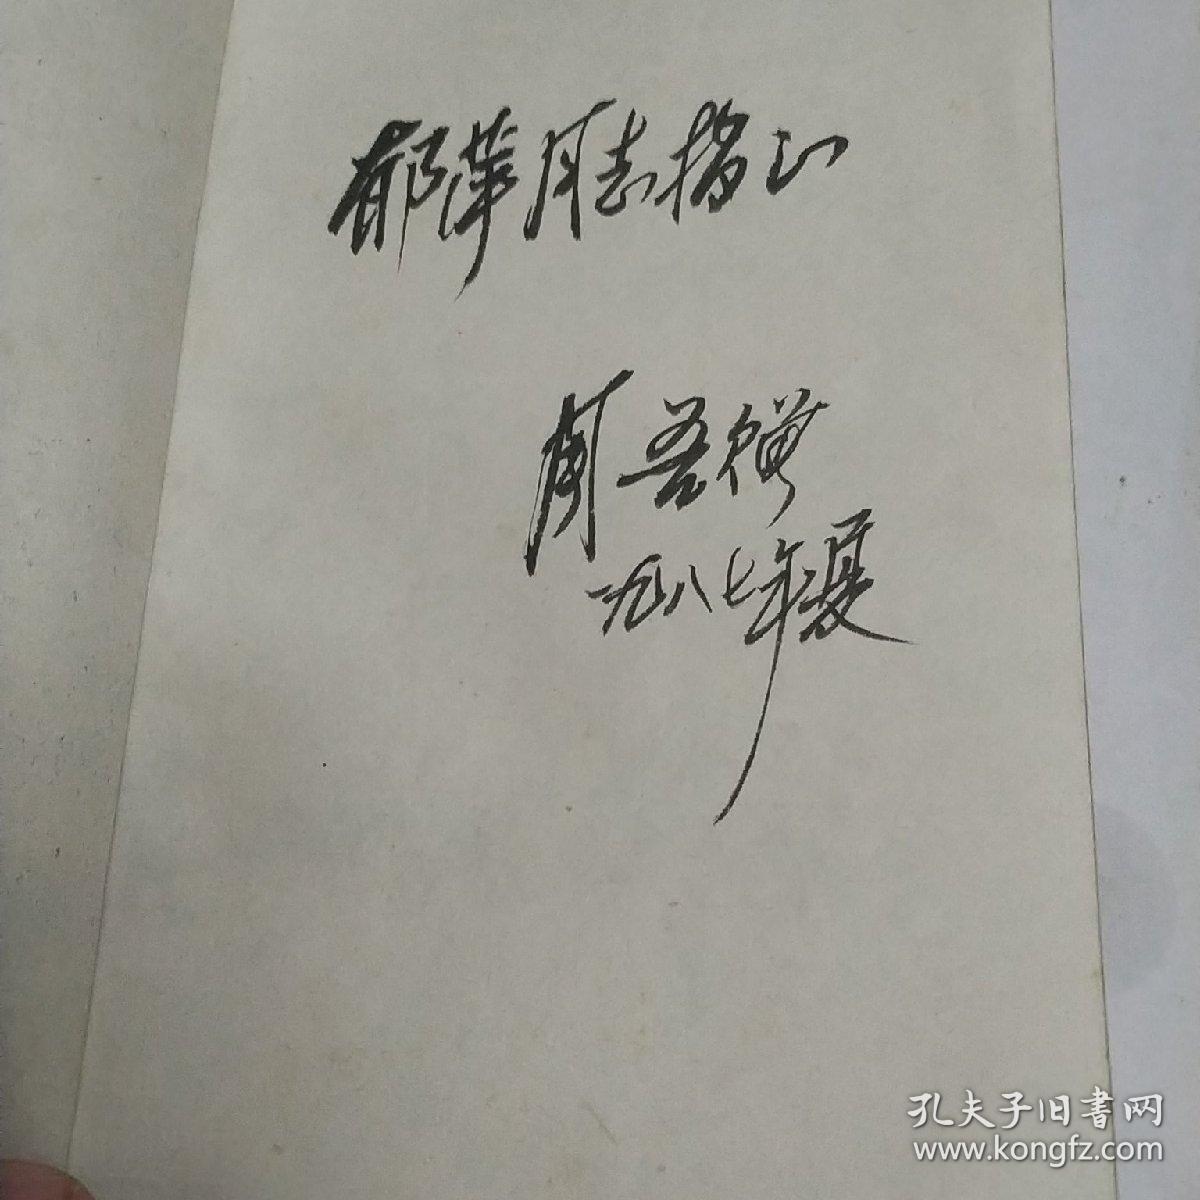 郁萍同志指正
周吾禅
一九八七年夏
孔夫子旧书网
www.kongfz.com